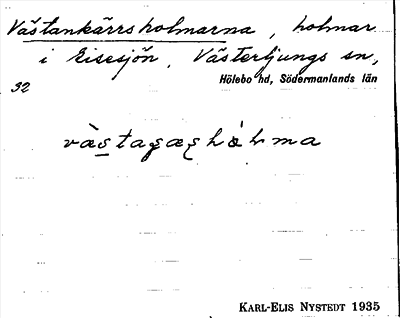 Västankärrsholmarna, holmar
i Eisesjön, Västerljungs sn,
Hölebo hd, Södermanlands län
32
KARL-ELIS NYSTEDT 1935